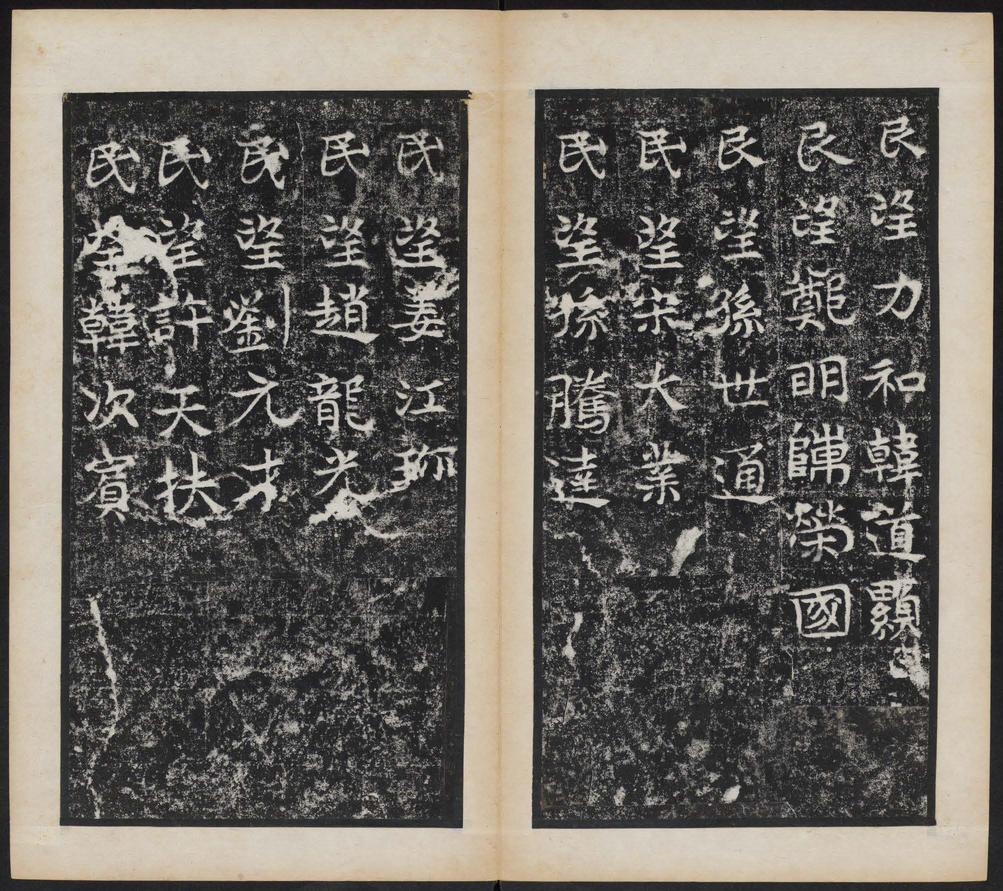 民望力和韓道顯
民望鄭明歸榮國
民望孫世通
民望宋大業
民望孫騰達
民望姜江珎
民望趙龍光
民望劉元才
民望許天扶
民望韓次賓